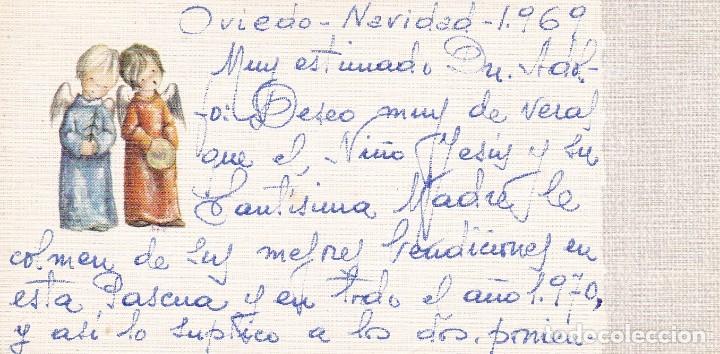 Oviedo-Navidad-1.969
Muy estimado Dr. Adol-
fo: Deseo muy de veras
que el Niño Jesús y su
Santísima Madre le
colmen de sus mejores bendiciones en
esta Pascua y en todo el año 1.970,
y así lo suplico a los dos, ponien-
todocoleccion.net